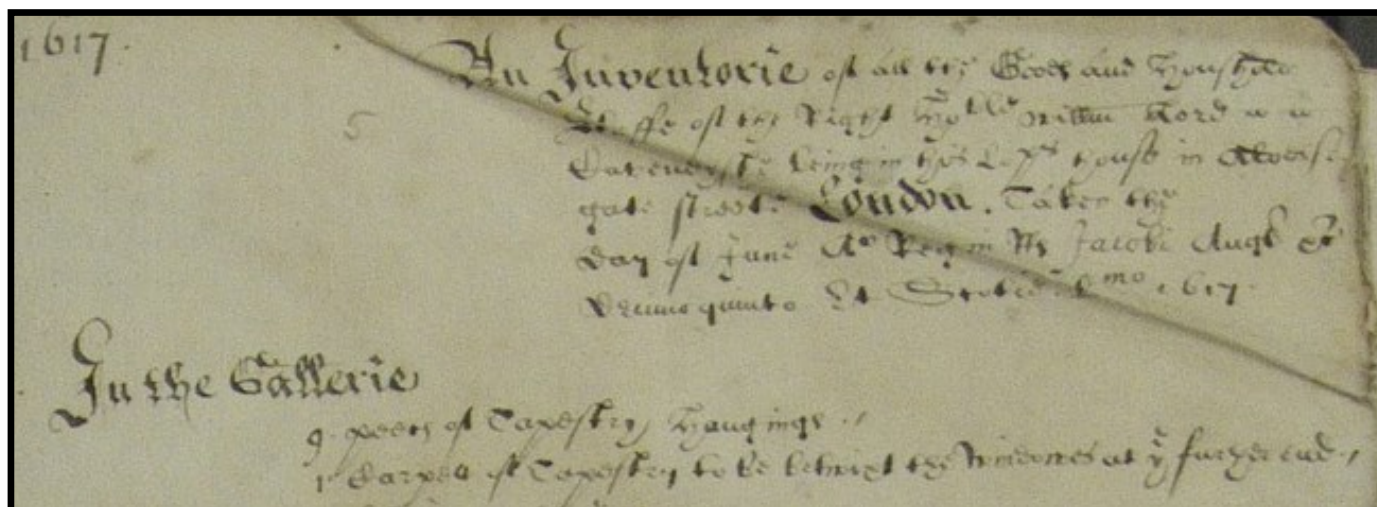 1617.
An Inventorie of all the Goods and Houshold
Stuffe of the Right Ho:ble Willm Lord
Cavendyshe being in his Lo:ps house in Alders
gate streete London. Taken the
day of June Ao Regni Rs Jacobi Angl &c
Decimo quinto Et Scotie mo 1617.
In the Gallerie
9. peeces of Tapestry Hangings
1 Carpett of Tapestry to be betwixt the Windowes at ye further end